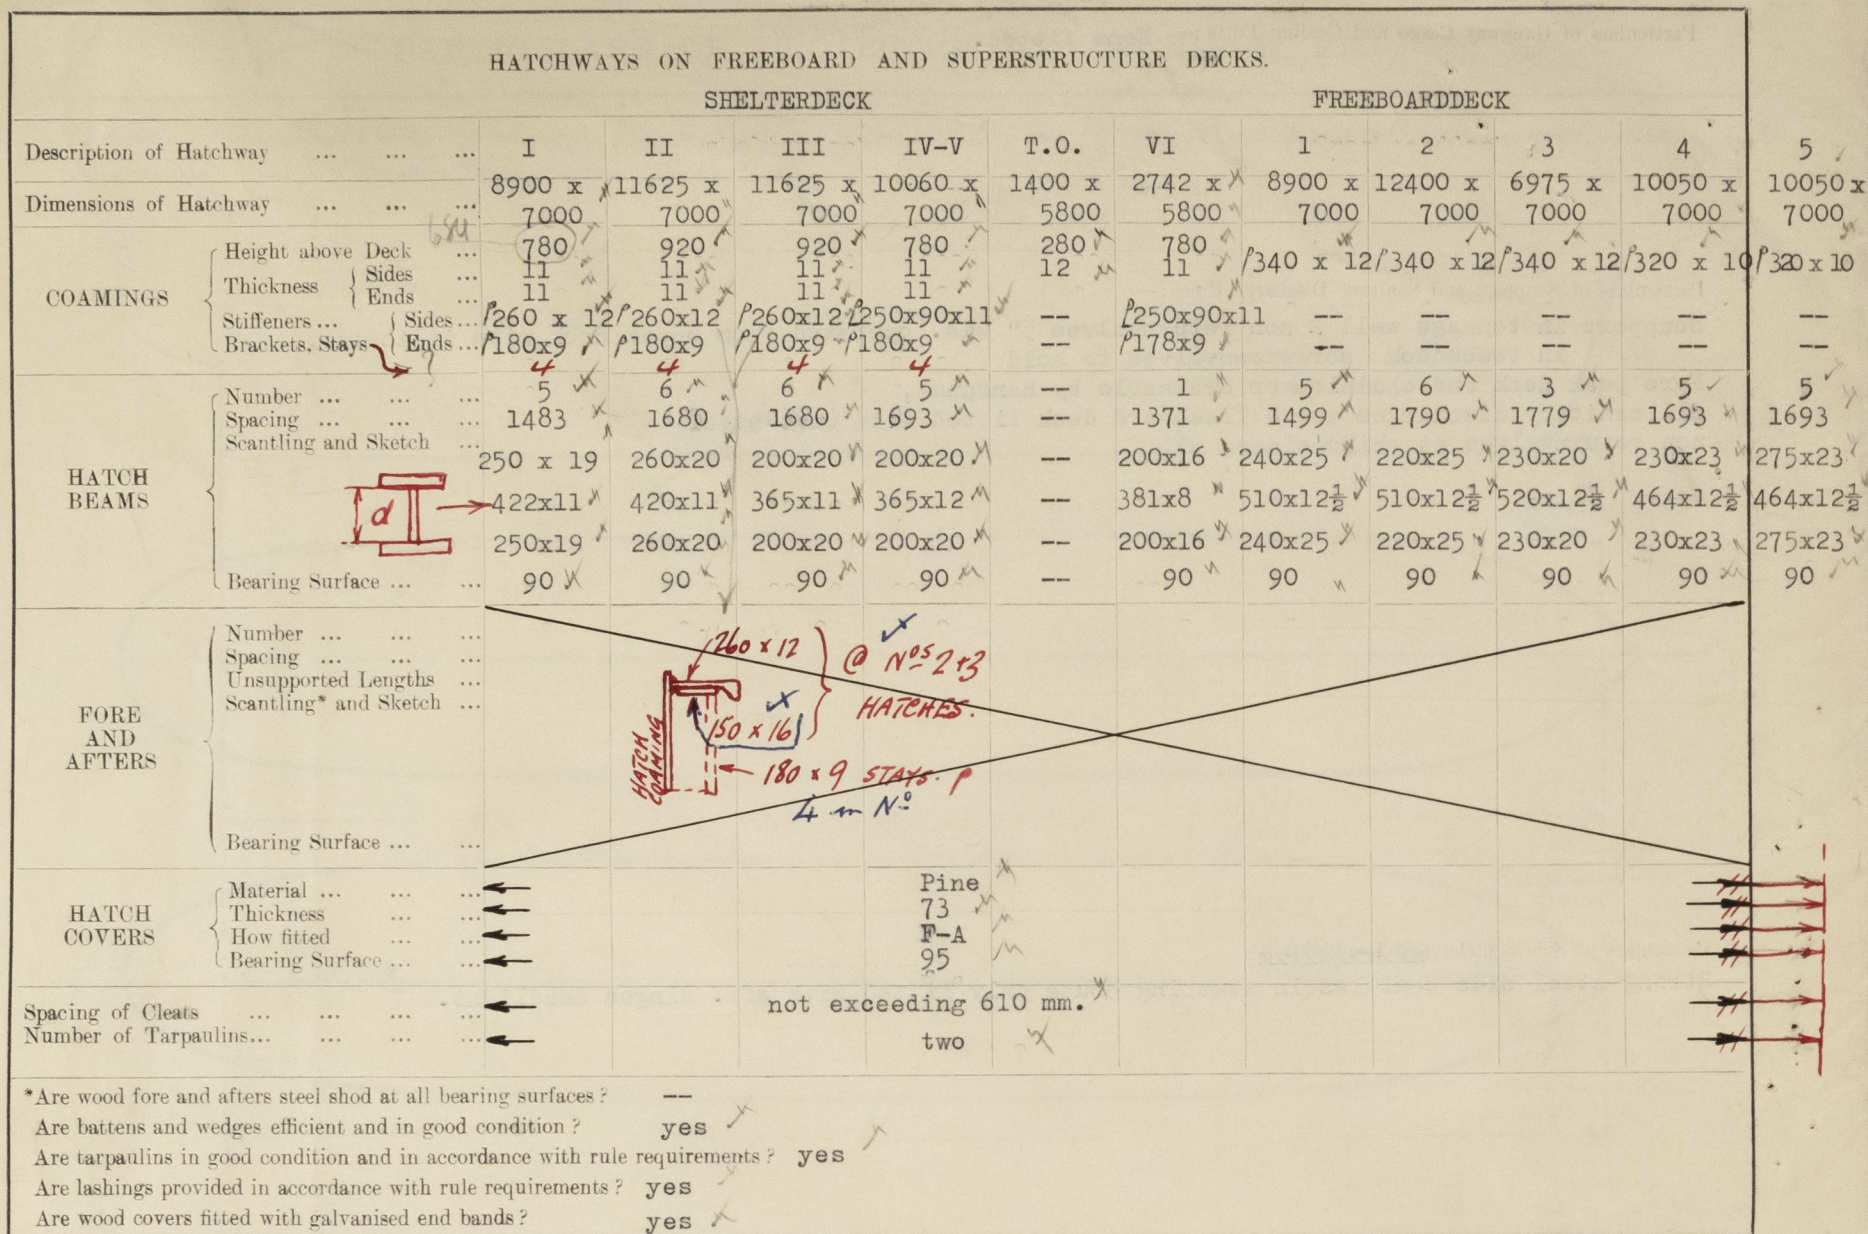 HATCHWAYS ON FREEBOARD AND SUPERSTRUCTURE DECKS.
SHELTERDECK FREEBOARDDECK
Description of Hatchway ... ... ... I II III IV-V T.O. VI 1 2 3 4 5
Dimensions of Hatchway ... ... ... 8900 x 11625 x 11625 x 10060 x 1400 x 2742 x 8900 x 12400 x 6975 x 10050 x 10050 x
7000 7000 7000 7000 5800 5800 7000 7000 7000 7000 7000
684
COAMINGS
Height above Deck ... 780 920 920 780 280 780
Thickness Sides ... 11 11 11 11 12 11 340 x 12 340 x 12 340 x 12 320 x 10 320 x 10
Ends ... 11 11 11 11
Stiffeners ... Sides ... 260 x 12 260x12 260x12 250x90x11 250x90x11 -- -- -- -- --
Brackets, Stays Ends ... 180x9 180x9 180x9 180x9 -- 178x9 -- -- -- -- --
4 4 4 4
HATCH BEAMS
Number ... ... ... 5 6 6 5 -- 1 5 6 3 5 5
Spacing ... ... ... 1483 1680 1680 1693 -- 1371 1499 1790 1779 1693 1693
Scantling and Sketch ...
250 x 19 260x20 200x20 200x20 -- 200x16 240x25 220x25 230x20 230x23 275x23
d 422x11 420x11 365x11 365x12 -- 381x8 510x12½ 510x12½ 520x12½ 464x12½ 464x12½
250x19 260x20 200x20 200x20 -- 200x16 240x25 220x25 230x20 230x23 275x23
Bearing Surface ... ... 90 90 90 90 -- 90 90 90 90 90 90
FORE AND AFTERS
Number ... ... ...
Spacing ... ... ...
Unsupported Lengths ...
Scantling* and Sketch ...
260 x 12 @ Nos 2+3
HATCHES.
150 x 16
HATCH COAMING
180 x 9 STAYS.
4 in No
Bearing Surface ... ...
HATCH COVERS
Material ... ... ... Pine
Thickness ... ... 73
How fitted ... ... F-A
Bearing Surface ... ... 95
Spacing of Cleats ... ... ... ... not exceeding 610 mm.
Number of Tarpaulins... ... ... ... two
*Are wood fore and afters steel shod at all bearing surfaces? --
Are battens and wedges efficient and in good condition? yes
Are tarpaulins in good condition and in accordance with rule requirements? yes
Are lashings provided in accordance with rule requirements? yes
Are wood covers fitted with galvanised end bands? yes